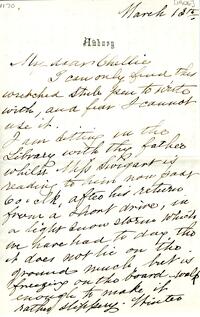 March 13th
[1866]
Auburn
My dear Nellie
I can only find this
wretched stub pen to write
with, and fear I cannot
use it.
I am sitting in the
Library with thy father
whilst Miss Swigart is
reading to him now past
6 o'c'k, after his return
from a short drive, in
a light snow storm which
we have had to day tho'
it does not lie on the
ground much, but is
freezing on the board walk
enough to make it
rather slippery. Winter